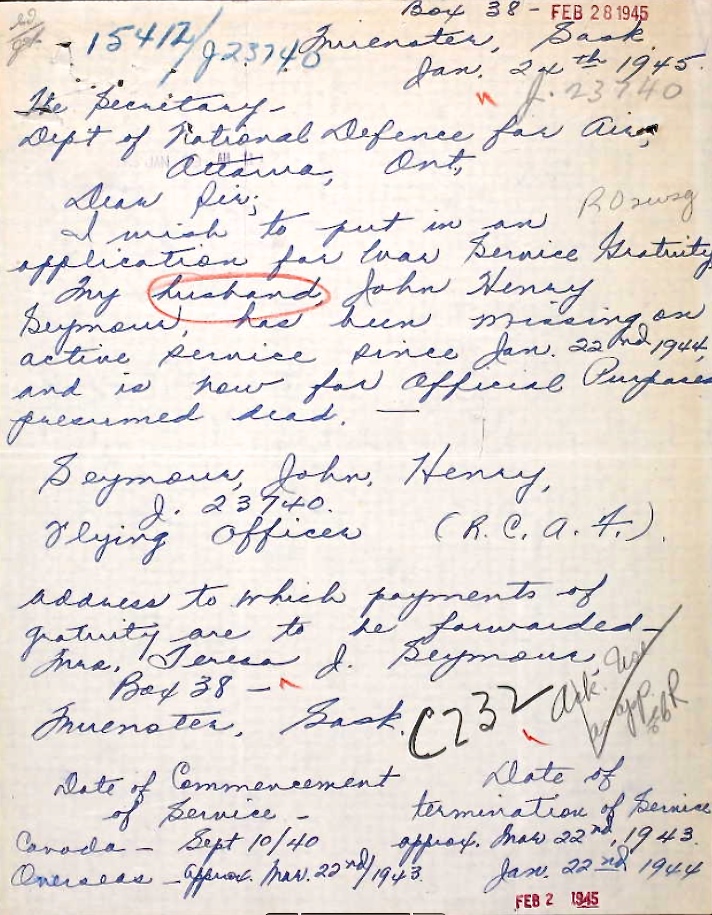 Box 38 - FEB 28 1945
15412/J23740 Muenster, Sask.
Jan. 24th 1945.
J. 23740
The Secretary-
Dept of National Defence for Air,
Ottawa, Ont,
Dear Sir;
I wish to put in an
application for War Service Gratuity
My husband, John Henry
Seymour, has been missing on
active service since Jan. 22nd 1944,
and is now for Official Purposes
presumed dead. —
Seymour, John, Henry,
J. 23740.
Flying Officer (R.C.A.F.).
address to which payments of
gratuity are to be forwarded-
Mrs. Teresa J. Seymour,
Box 38 -
Muenster, Sask.
C232
Date of Commencement
of Service -
Canada - Sept 10/40
Overseas - approx. Mar. 22nd/1943
Date of
termination of Service
approx. Mar 22nd, 1943.
Jan. 22nd 1944
FEB 2 1945